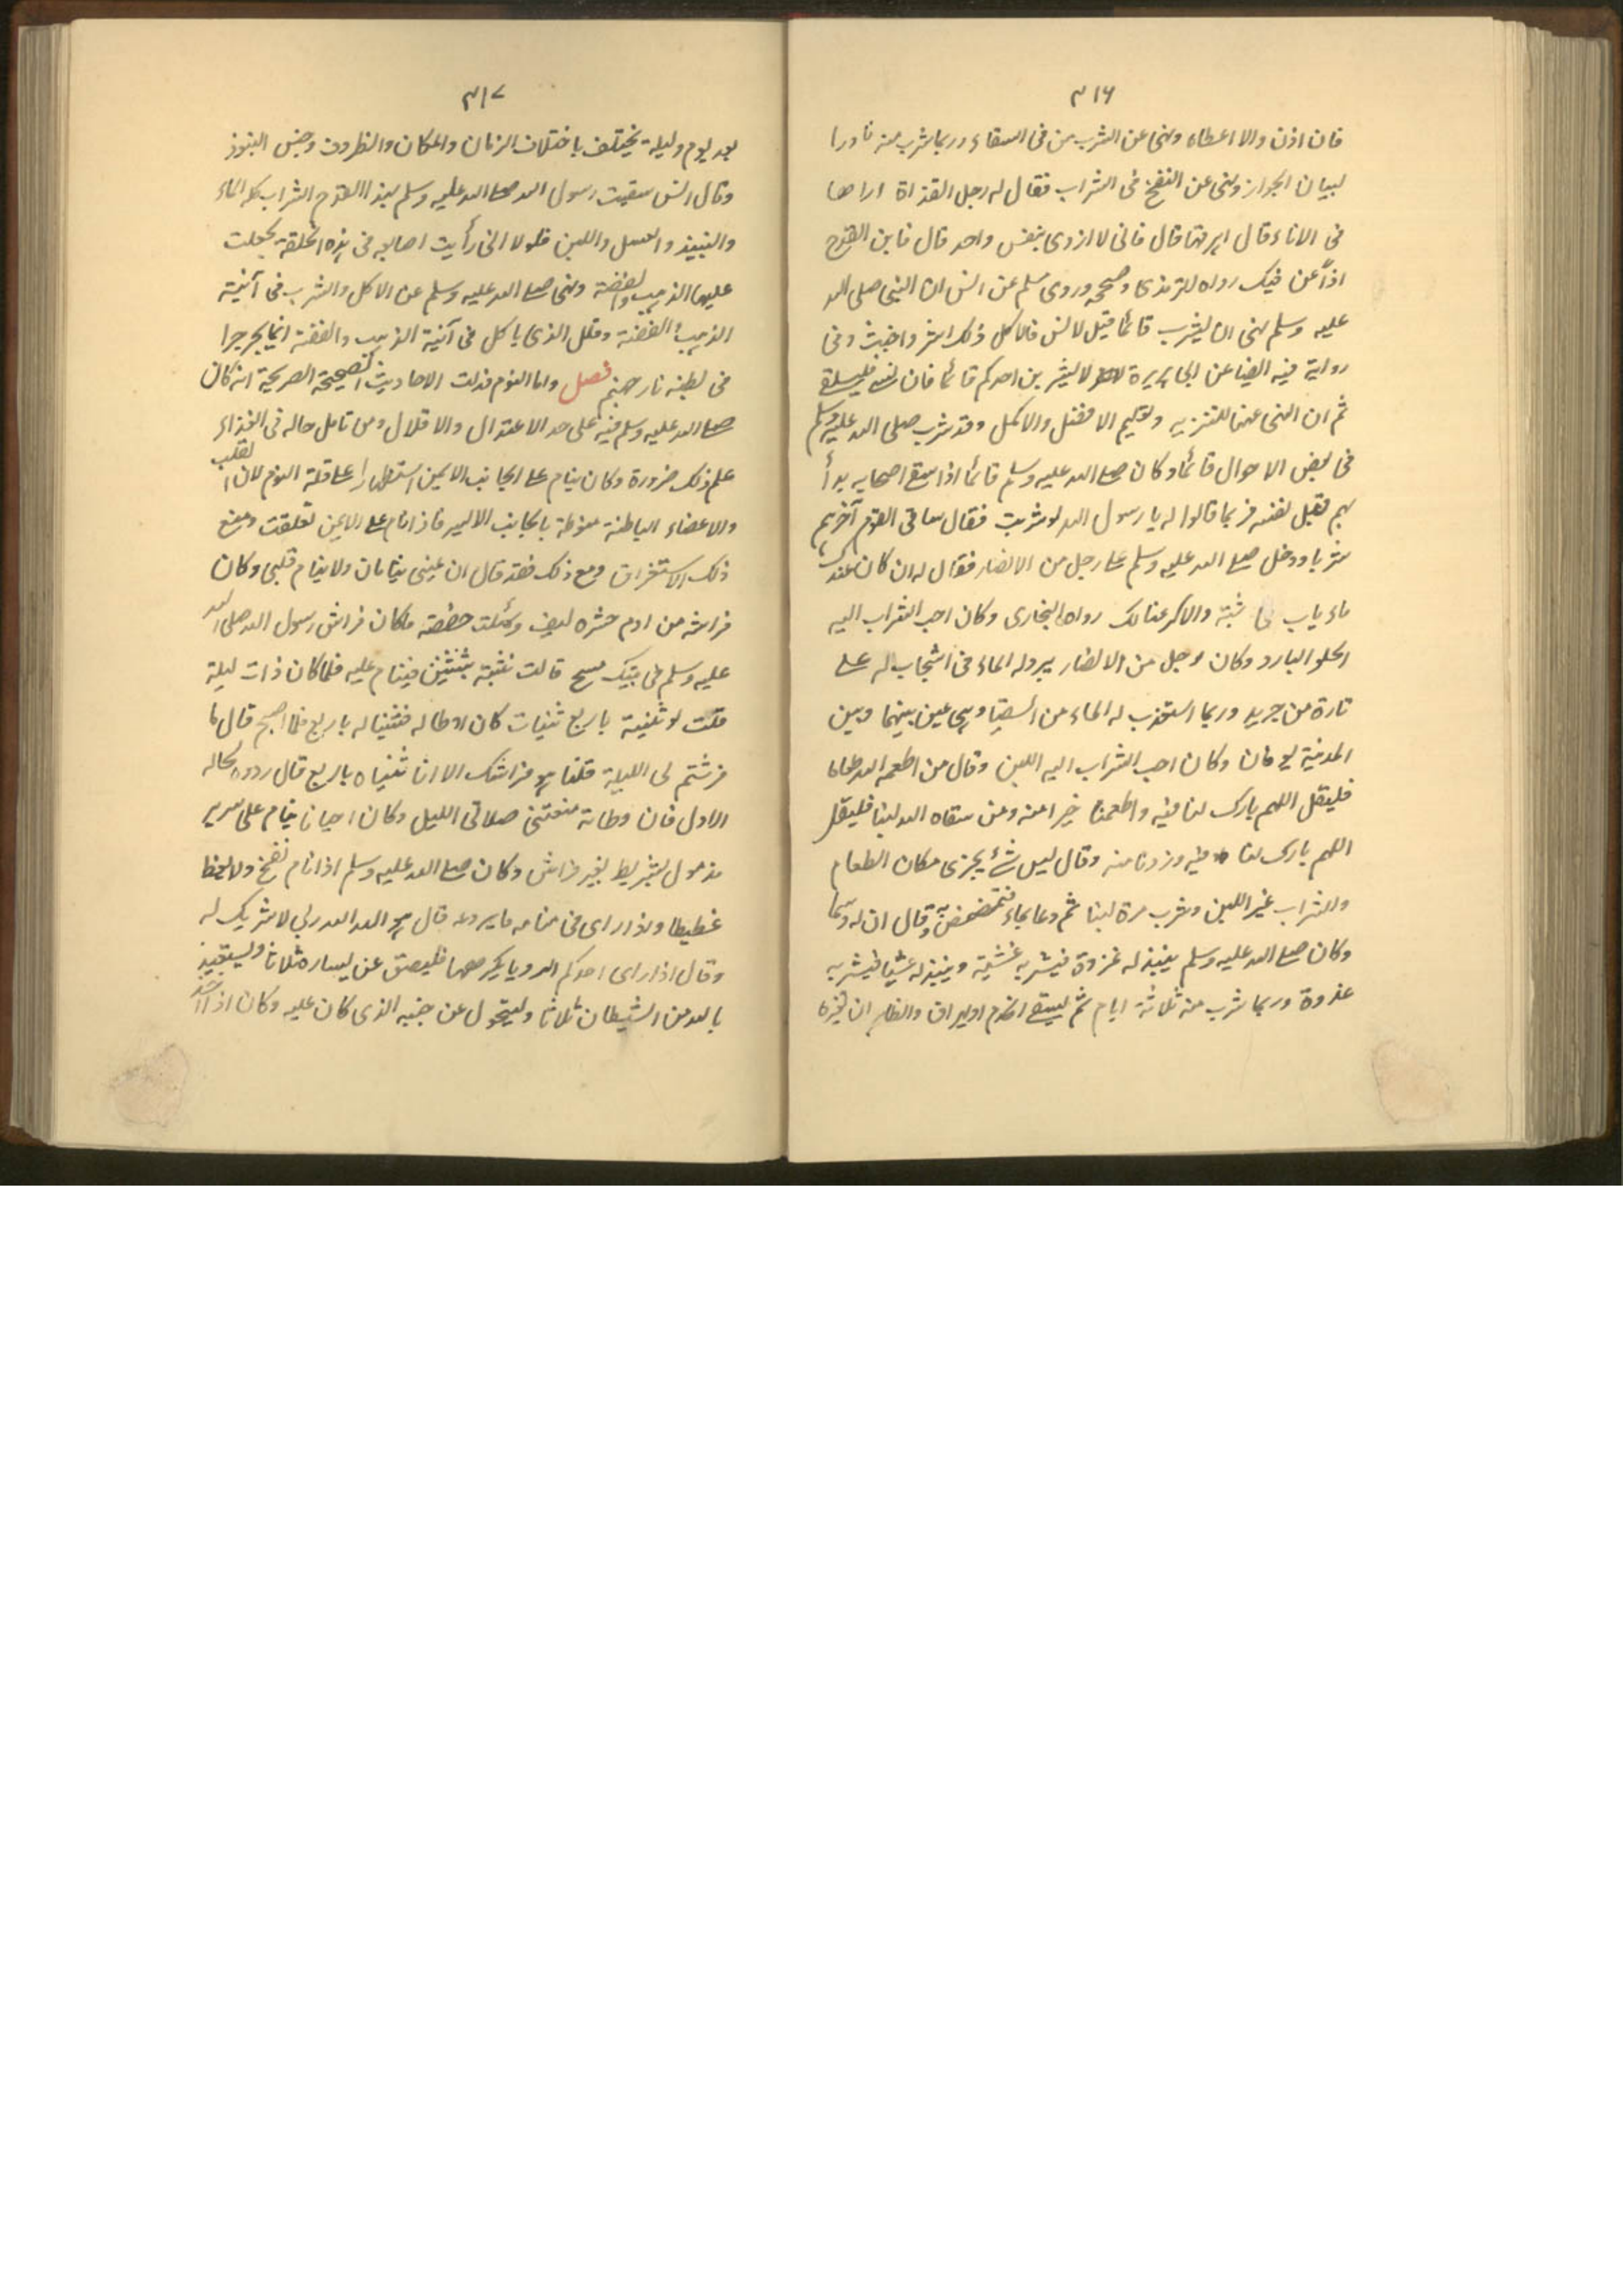 ٣١٦
فان اذن والا اعطاه ونهى عن الشرب من فى السقاء وربما شرب منه نادرا
لبيان الجواز ونهى عن النفخ فى الشراب فقال له رجل القذاة اراها
فى الاناء قال اهرقها قال فانى لا اروى بنفس واحد قال فابن القدح
اذاً عن فيك رواه الترمذى وصححه وروى مسلم عن انس ان النبى صلى الله
عليه وسلم نهى ان يشرب قائما قيل لانس فالاكل ذلك اشر واخبث وفى
رواية فيه ايضا عن ابى هريرة لا يشربن احدكم قائما فان نسى فليستق
ثم ان النهى عنها للتنزيه وتعليم الافضل والاكمل وقد شرب صلى الله عليه وسلم
فى بعض الاحوال قائما وكان صلى الله عليه وسلم قائما اذا سقى اصحابه بدأ
بهم قبل نفسه فربما قالوا له يا رسول الله لو شربت فقال ساقى القوم آخرهم
شربا ودخل صلى الله عليه وسلم على رجل من الانصار فقال له ان كان عندك
ماء بات فى شنة والا كرعنا لك رواه البخارى وكان احب الشراب اليه
الحلو البارد وكان رجل من الانصار يبرد له الماء فى اشجاب له على
تارة من جريد وربما استعذب له الماء من السقيا وهى عين بينها وبين
المدينة يومان وكان احب الشراب اليه اللبن وقال من اطعمه الله طعاما
فليقل اللهم بارك لنا فيه واطعمنا خيرا منه ومن سقاه الله لبنا فليقل
اللهم بارك لنا فيه وزدنا منه وقال ليس شئ يجزى مكان الطعام
والشراب غير اللبن وشرب مرة لبنا ثم دعا بماء فتمضمض به وقال ان له دسما
وكان صلى الله عليه وسلم ينبذ له غدوة فيشربه عشية وينبذ له عشيا فيشربه
غدوة وربما شرب منه ثلاثة ايام ثم يسقى الخدم او يهراق والظاهر ان تغيره
٣١٧
بعد يوم وليلة يختلف باختلاف الزمان والمكان والظروف وجنس المنبوذ
وقال انس سقيت رسول الله صلى الله عليه وسلم بهذا القدح الشراب كله الماء
والنبيذ والعسل واللبن فلولا انى رأيت اصابعه فى هذه الحلقة لجعلت
عليها الذهب والفضة ونهى صلى الله عليه وسلم عن الاكل والشرب فى آنية
الذهب والفضة وقال الذى ياكل فى آنية الذهب والفضة انما يجرجر
فى بطنه نار جهنم فصل واما النوم فدلت الاحاديث الصحيحة الصريحة انه كان
صلى الله عليه وسلم فيه على حد الاعتدال والاقلال ومن تامل حاله فى الغذاء
علم ذلك ضرورة وكان ينام على الجانب الايمن استظهارا على قلة النوم لان القلب
والاعضاء الباطنة منوطة بالجانب الايسر فاذا نام على الايمن تعلقت ومنع
ذلك الاستغراق ومع ذلك فقد قال ان عينى ينامان ولا ينام قلبى وكان
فراشه من ادم حشوه ليف وسئلت حفصة ما كان فراش رسول الله صلى الله
عليه وسلم فى بيتك مسح قالت نثنيه ثنيتين فينام عليه فلما كان ذات ليلة
قلت لو ثنيته باربع ثنيات كان اوطا له فثنيناه له باربع فلما اصبح قال ما
فرشتم لى الليلة قلنا هو فراشك الا انا ثنيناه باربع قال ردوه لحاله
الاول فان وطاءته منعتنى صلاتى الليل وكان احيانا ينام على سرير
مرمول بشريط بغير فراش وكان صلى الله عليه وسلم اذا نام نفخ ولا يغط
غطيطا واذا راى فى منامه ما يروعه قال هو الله الله ربى لا شريك له
وقال اذا راى احدكم الرويا يكرهها فليبصق عن يساره ثلاثا وليستعيذ
بالله من الشيطان ثلاثا وليتحول عن جنبه الذى كان عليه وكان اذا اخذ